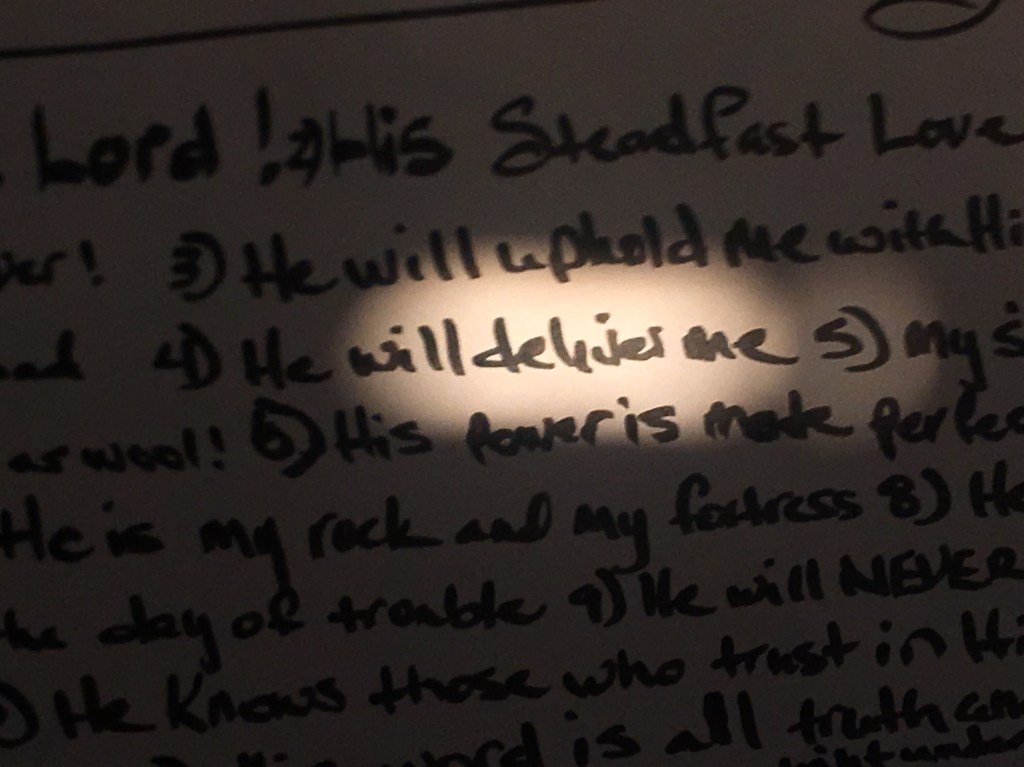 Lord! 2) His Steadfast Love
ver! 3) He will uphold me with Hi
4) He will deliver me 5) my s
as wool! 6) His power is made perfec
He is my rock and my fortress 8) He
the day of trouble 9) He will NEVER
) He Knows those who trust in Hi
word is all truth an